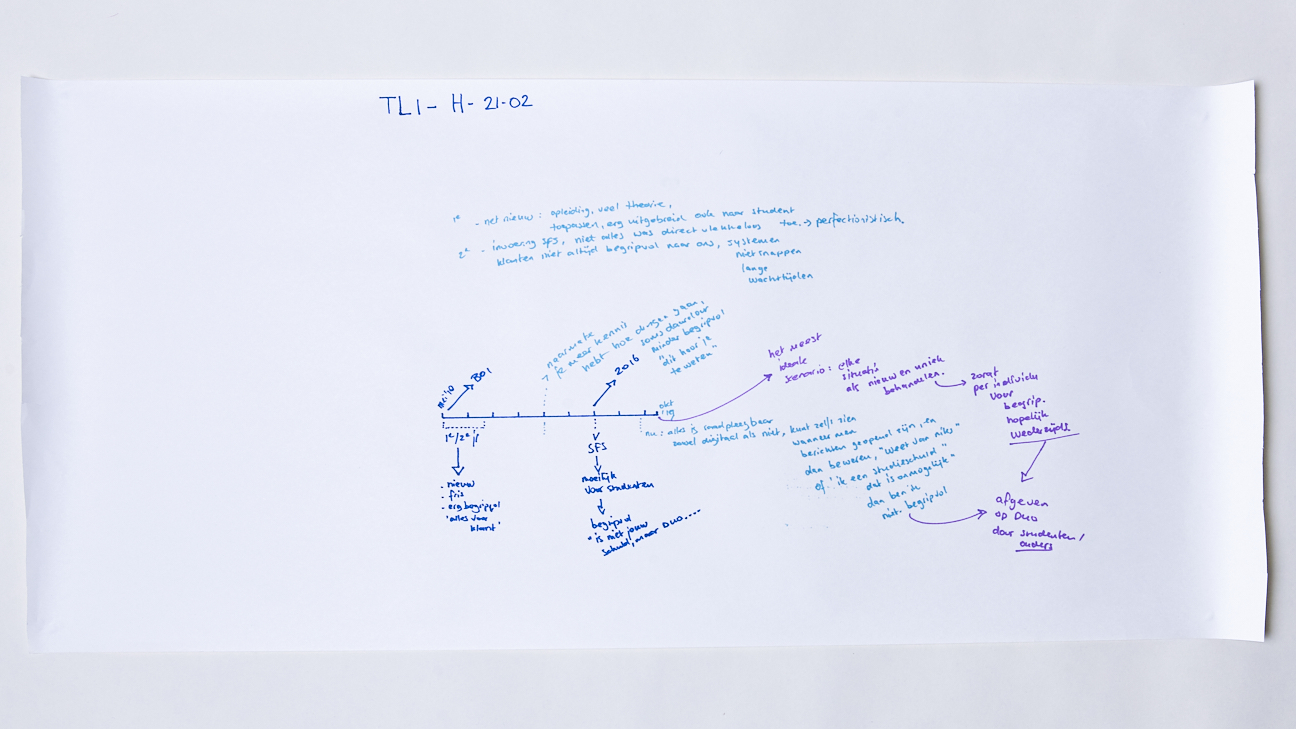 TL1- H- 21-02
1e - net nieuw: opleiding, veel theorie,
toepassen, erg uitgebreid ook naar student
toe. → perfectionistisch
2e - invoering SFS, niet alles was direct vlekkeloos
klanten niet altijd begripvol naar ons, systemen
niet snappen
lange
wachttijden
naarmate
je meer kennis
hebt hoe dingen gaan,
soms daardoor
minder begripvol
"dit hoor je
te weten"
2016
BOI
okt
'19
1e/2e jr
- nieuw
- fris
- erg begripvol
'alles voor
klant'
SFS
moeilijk
voor studenten
begripvol
"is niet jouw
schuld, maar DUO....
nu: alles is raadpleegbaar
zowel digitaal als niet, kunt zelfs zien
wanneer men
berichten geopend zijn, en
dan beweren, "weet van niks"
of 'ik een studieschuld"
dat is onmogelijk"
dan ben ik
niet begripvol
het meest
ideale
scenario: elke
situatie
als nieuw en uniek
behandelen.
zorgt
per individu
voor
begrip.
hopelijk
wederzijds
afgeven
op DUO
door studenten/
ouders